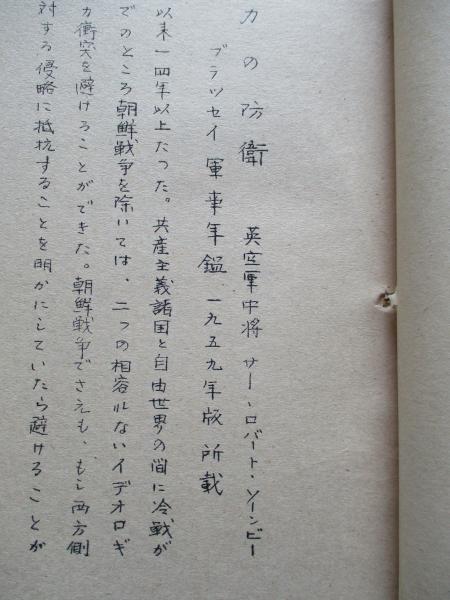 カの防衛 英空軍中将 サー・ロバート・ソーンビー
ブラッセイ軍事年鑑、一九五九年版所載
以来一四年以上たった。共産主義諸国と自由世界の間に冷戦が
でのところ朝鮮戦争を除いては、二つの相容れないイデオロギ
カ衝突を避けることができた。朝鮮戦争でさえも、もし両方側
対する侵略に抵抗することを明かにしていたら避けることが